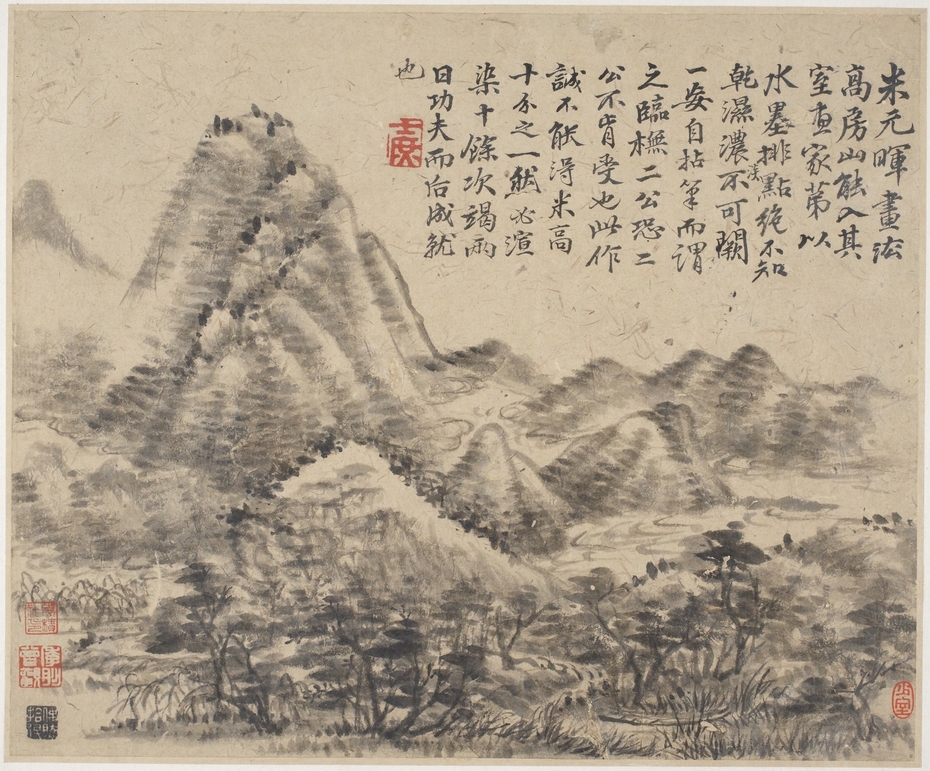 米元暉畫法
高房山能入其
室畫家第以
水墨排點絶不知
乾濕濃淺不可闕
一妄自拈筆而謂
之臨橅二公恐二
公不肯受也此作
誠不能得米高
十分之一然必渲
染十餘次竭兩
日功夫而后成就
也